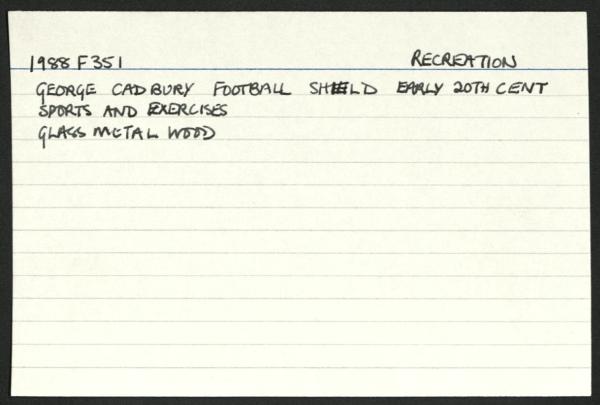 1988 F351 RECREATION
GEORGE CADBURY FOOTBALL SHIELD EARLY 20TH CENT
SPORTS AND EXERCISES
GLASS METAL WOOD